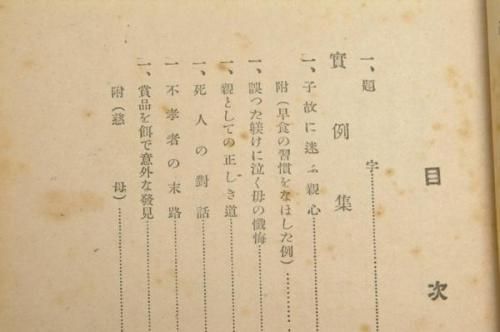 目次
一、題字
實例集
一、子故に迷ふ親心
附(早食の習慣をなほした例)
一、誤つた躾けに泣く母の懺悔
一、親としての正しき道
一、死人の對話
一 不孝者の末路
一、賞品を餌で意外な發見
附(慈母)